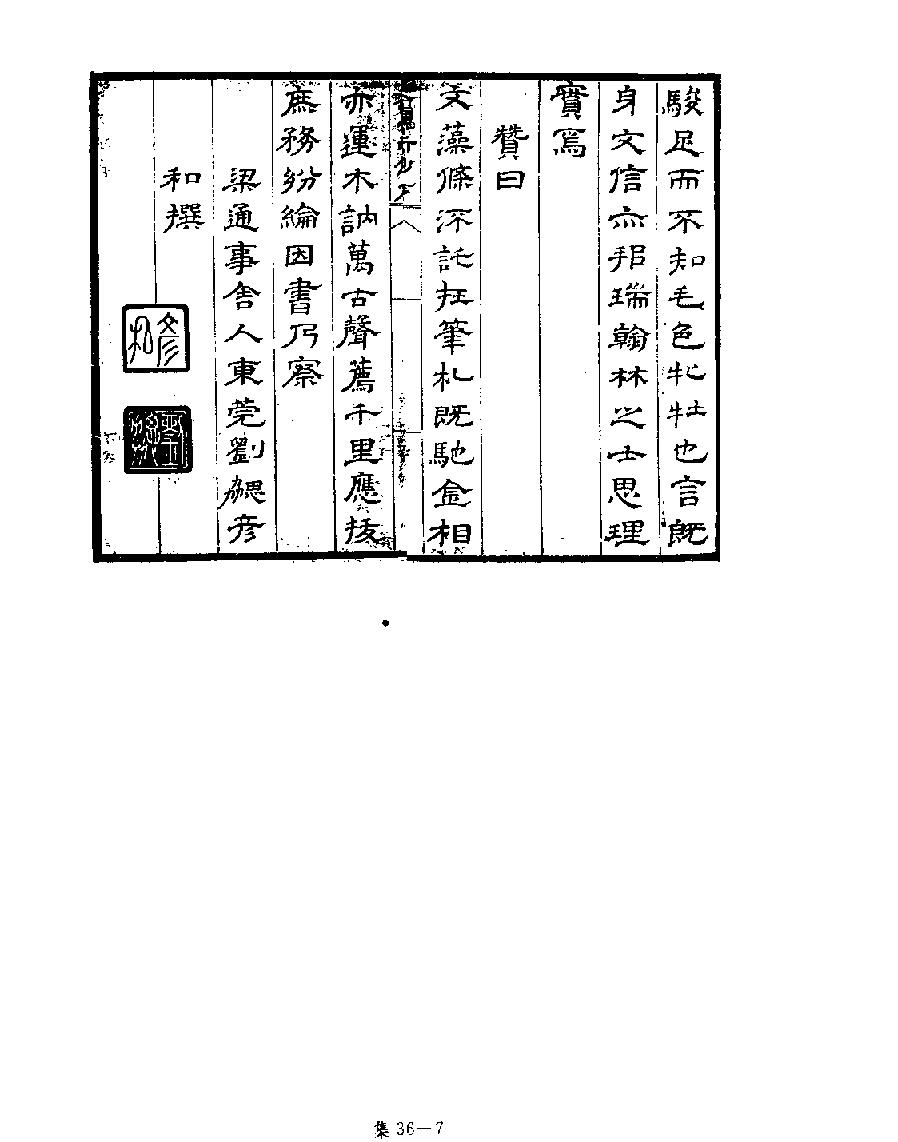 駿足而不知毛色牝牡也言既
身文信亦邦瑞翰林之士思理
實焉
贊曰
文藻條流託在筆札既馳金相
亦運木訥萬古聲薦千里應拔
庶務紛綸因書乃察
梁通事舍人東莞劉勰彥
和撰
彥和
劉勰
集 36—7